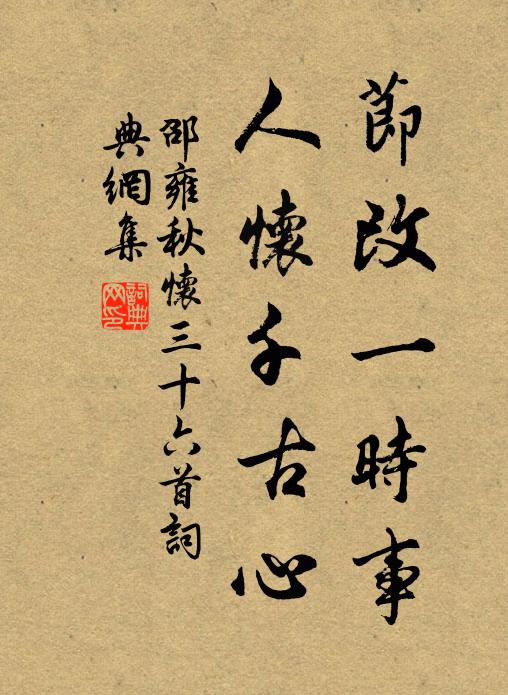 節改一時事
人懷千古心
邵雍秋懷三十六首詞
典網集
詞典网印